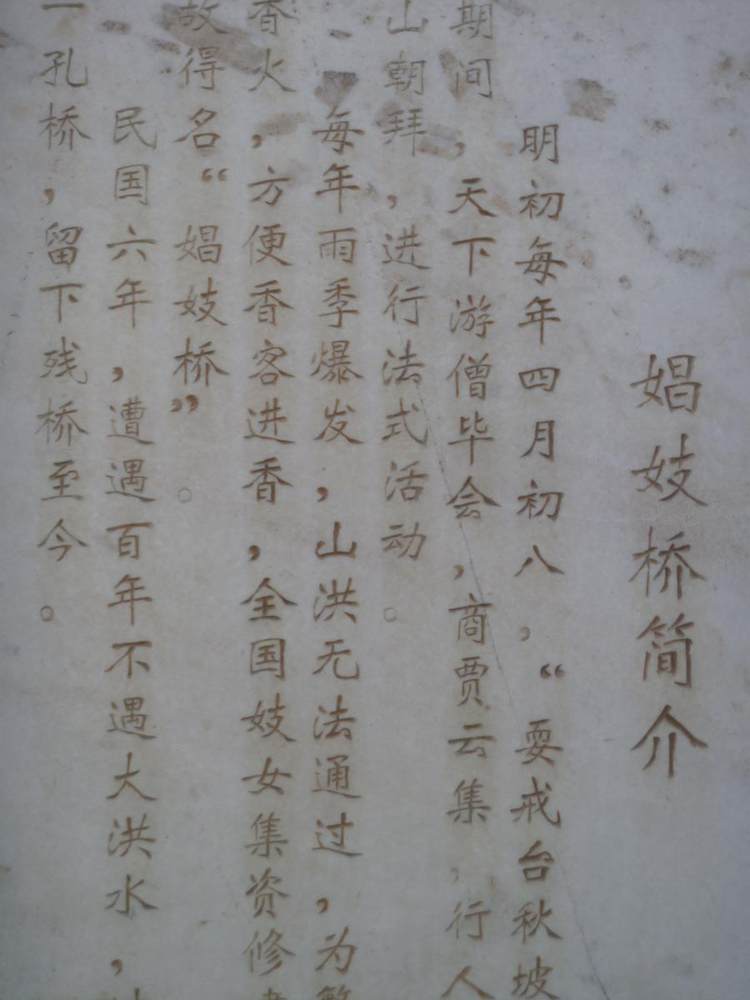 娼妓桥简介
明初每年四月初八，“耍戒台秋坡
期间，天下游僧毕会，商贾云集，行人
山朝拜，进行法式活动。
每年雨季爆发，山洪无法通过，为
香火，方便香客进香，全国妓女集资修
故得名“娼妓桥”。
民国六年，遭遇百年不遇大洪水，
一孔桥，留下残桥至今。